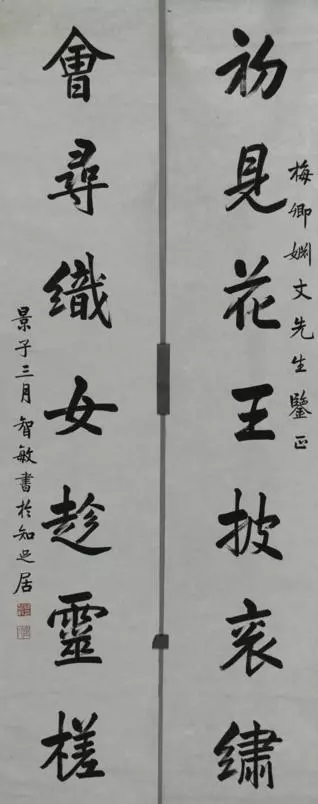 初見花王披衮繡
梅卿婣丈先生鑒正
會尋織女趁靈槎
景子三月智敏書於知居